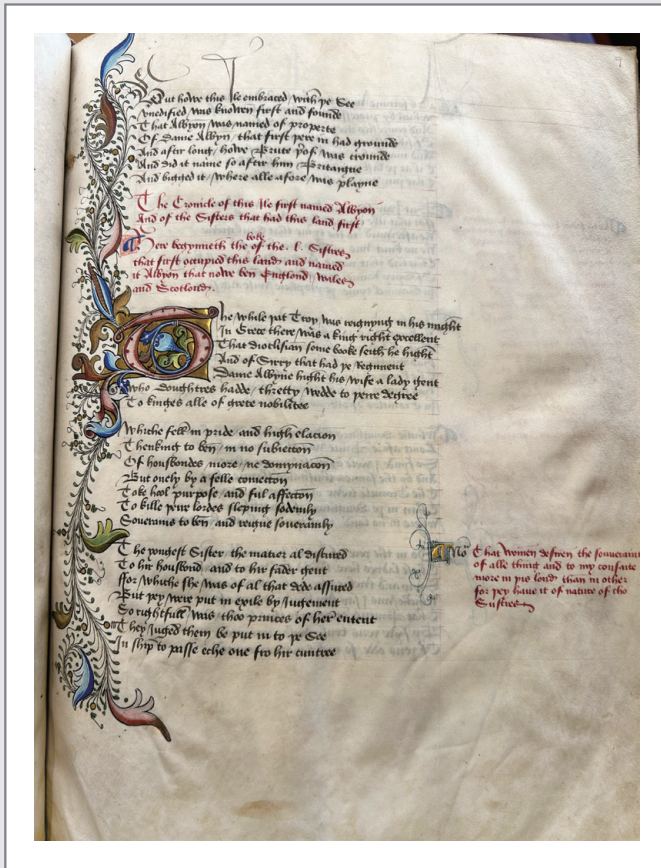 But howe this Ile embraced with þe See
Unedified was knowen first and founde
That Albyon was named of properte
Of Dame Albyn that first þere in had grounde
And after long howe Brute þof was crounde
And did it name so after him Britaigne
And bigged it where alle afore was playne
The Cronicle of this Ile first named Albyon
And of the Sisters that had this land first
Here begynneth the boke of the .l. Sistres
that first occupied this land and named
it Albyon that nowe ben Englond Wales
and Scotlond.
The while þat Troy was reignyng in his myght
In Grece there was a king right excellent
That Dioclisian some booke seith he hight
And of Surry that had þe Regyment
Dame Albyne hight his wife a lady gent
Who doughtres hadde thretty wedde to þeire degree
To kinges alle of grete nobilitee
Whiche felle in pride and high elacion
Thenking to ben in no subieccion
Of housbondes more ne dominacion
But onely by a felle conieccion
Toke hool purpose and ful affeccion
To kille þeire lordes sleping sodenly
Soverains to ben and reigne soverainly
The yongest Sister the matier al discured
To hir housbond and to hir fader gent
ffor whiche she was of al that dede assured
But þey were put in exile by Jugement
So rightfull was tho princes of her entent
They Juged them be put in to þe See
In ship to passe eche one fro hir cuntree
7
No That women desiren the soueraint
of alle thing and to my consaite
more in þis lond than in other
for þey have it of nature of tho
Sustres